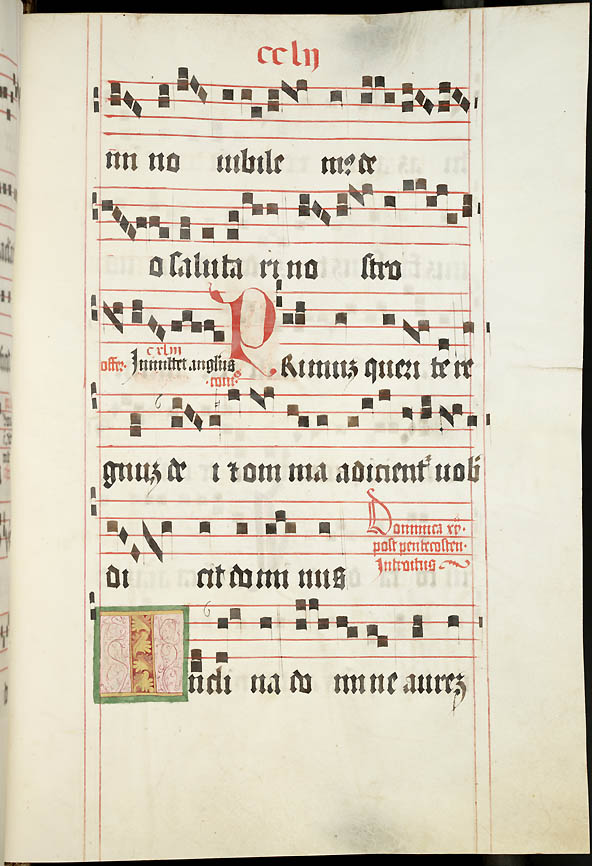 cclij
mi no iubile m9 de
o saluta ri no stro
cxliij
offr. Inmittet angelus PRimuz queri te re
com9
gnuz de i z om ma adicient᷑ uob
di cit do mi nus
Dominica xv.
post pentecosten.
Introitus
Incli na do mi ne aurez